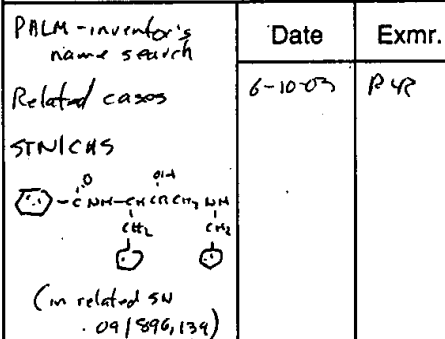 Date Exmr.
PALM - inventor's
name search
Related cases 6-10-03
STN/CAS
O OH
C NH-CH CH CH2 NH
CH2 CH2
(in related SN
09/896,139)